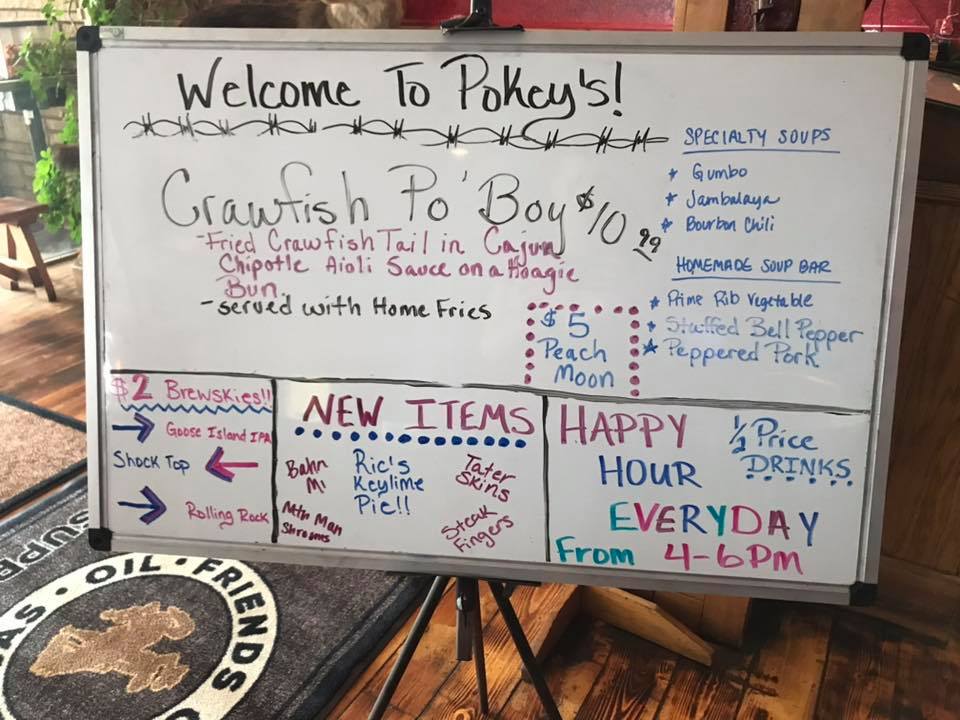 Welcome To Pokey's!
Crawfish Po'Boy $10.99
- Fried Crawfish Tail in Cajun
Chipotle Aioli Sauce on a Hoagie
Bun.
- served with Home Fries
$5
Peach
Moon
SPECIALTY SOUPS
* Gumbo
* Jambalaya
* Bourbon Chili
HOMEMADE SOUP BAR
* Prime Rib Vegetable
* Stuffed Bell Pepper
* Peppered Pork
$2 Brewskies!!
Goose Island IPA
Shock Top
Rolling Rock
NEW ITEMS
Bahn
Mi
Mtn Man
Shrooms
Ric's
Keylime
Pie!!
Tater
Skins
Steak
Fingers
HAPPY
HOUR
1/2 Price
DRINKS
EVERYDAY
From 4-6pm
GAS · OIL · FRIENDS
SUPPE